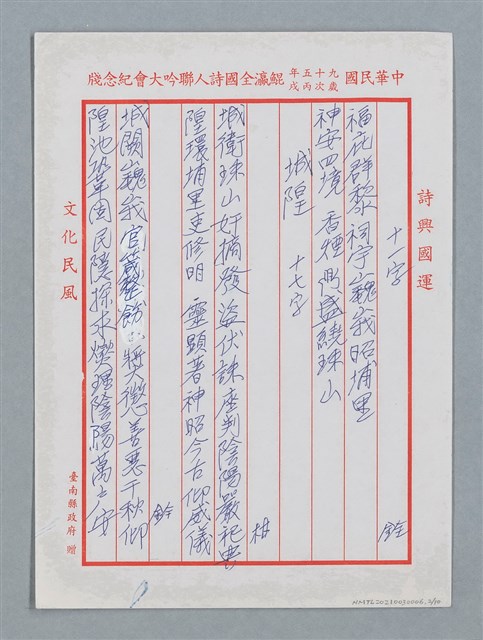 中華民國九十五年歲次丙戌鯤瀛全國詩人聯吟大會紀念牋
詩興國運
十一字
福庇群黎 祠宇巍峩昭埔里 銓
神安四境 香煙鼎盛繞珠山
城隍 十七字
城衛珠山奸摘發 盜伏誅座判陰陽嚴祀典 柑
隍環埔里吏修明 靈顯著神昭今古仰威儀
城闕巍峩 獎懲善惡千秋仰 銓
隍池鞏固民隱探求燮理陰陽萬戶安
文化民風
臺南縣政府 贈
NMTL20210030006